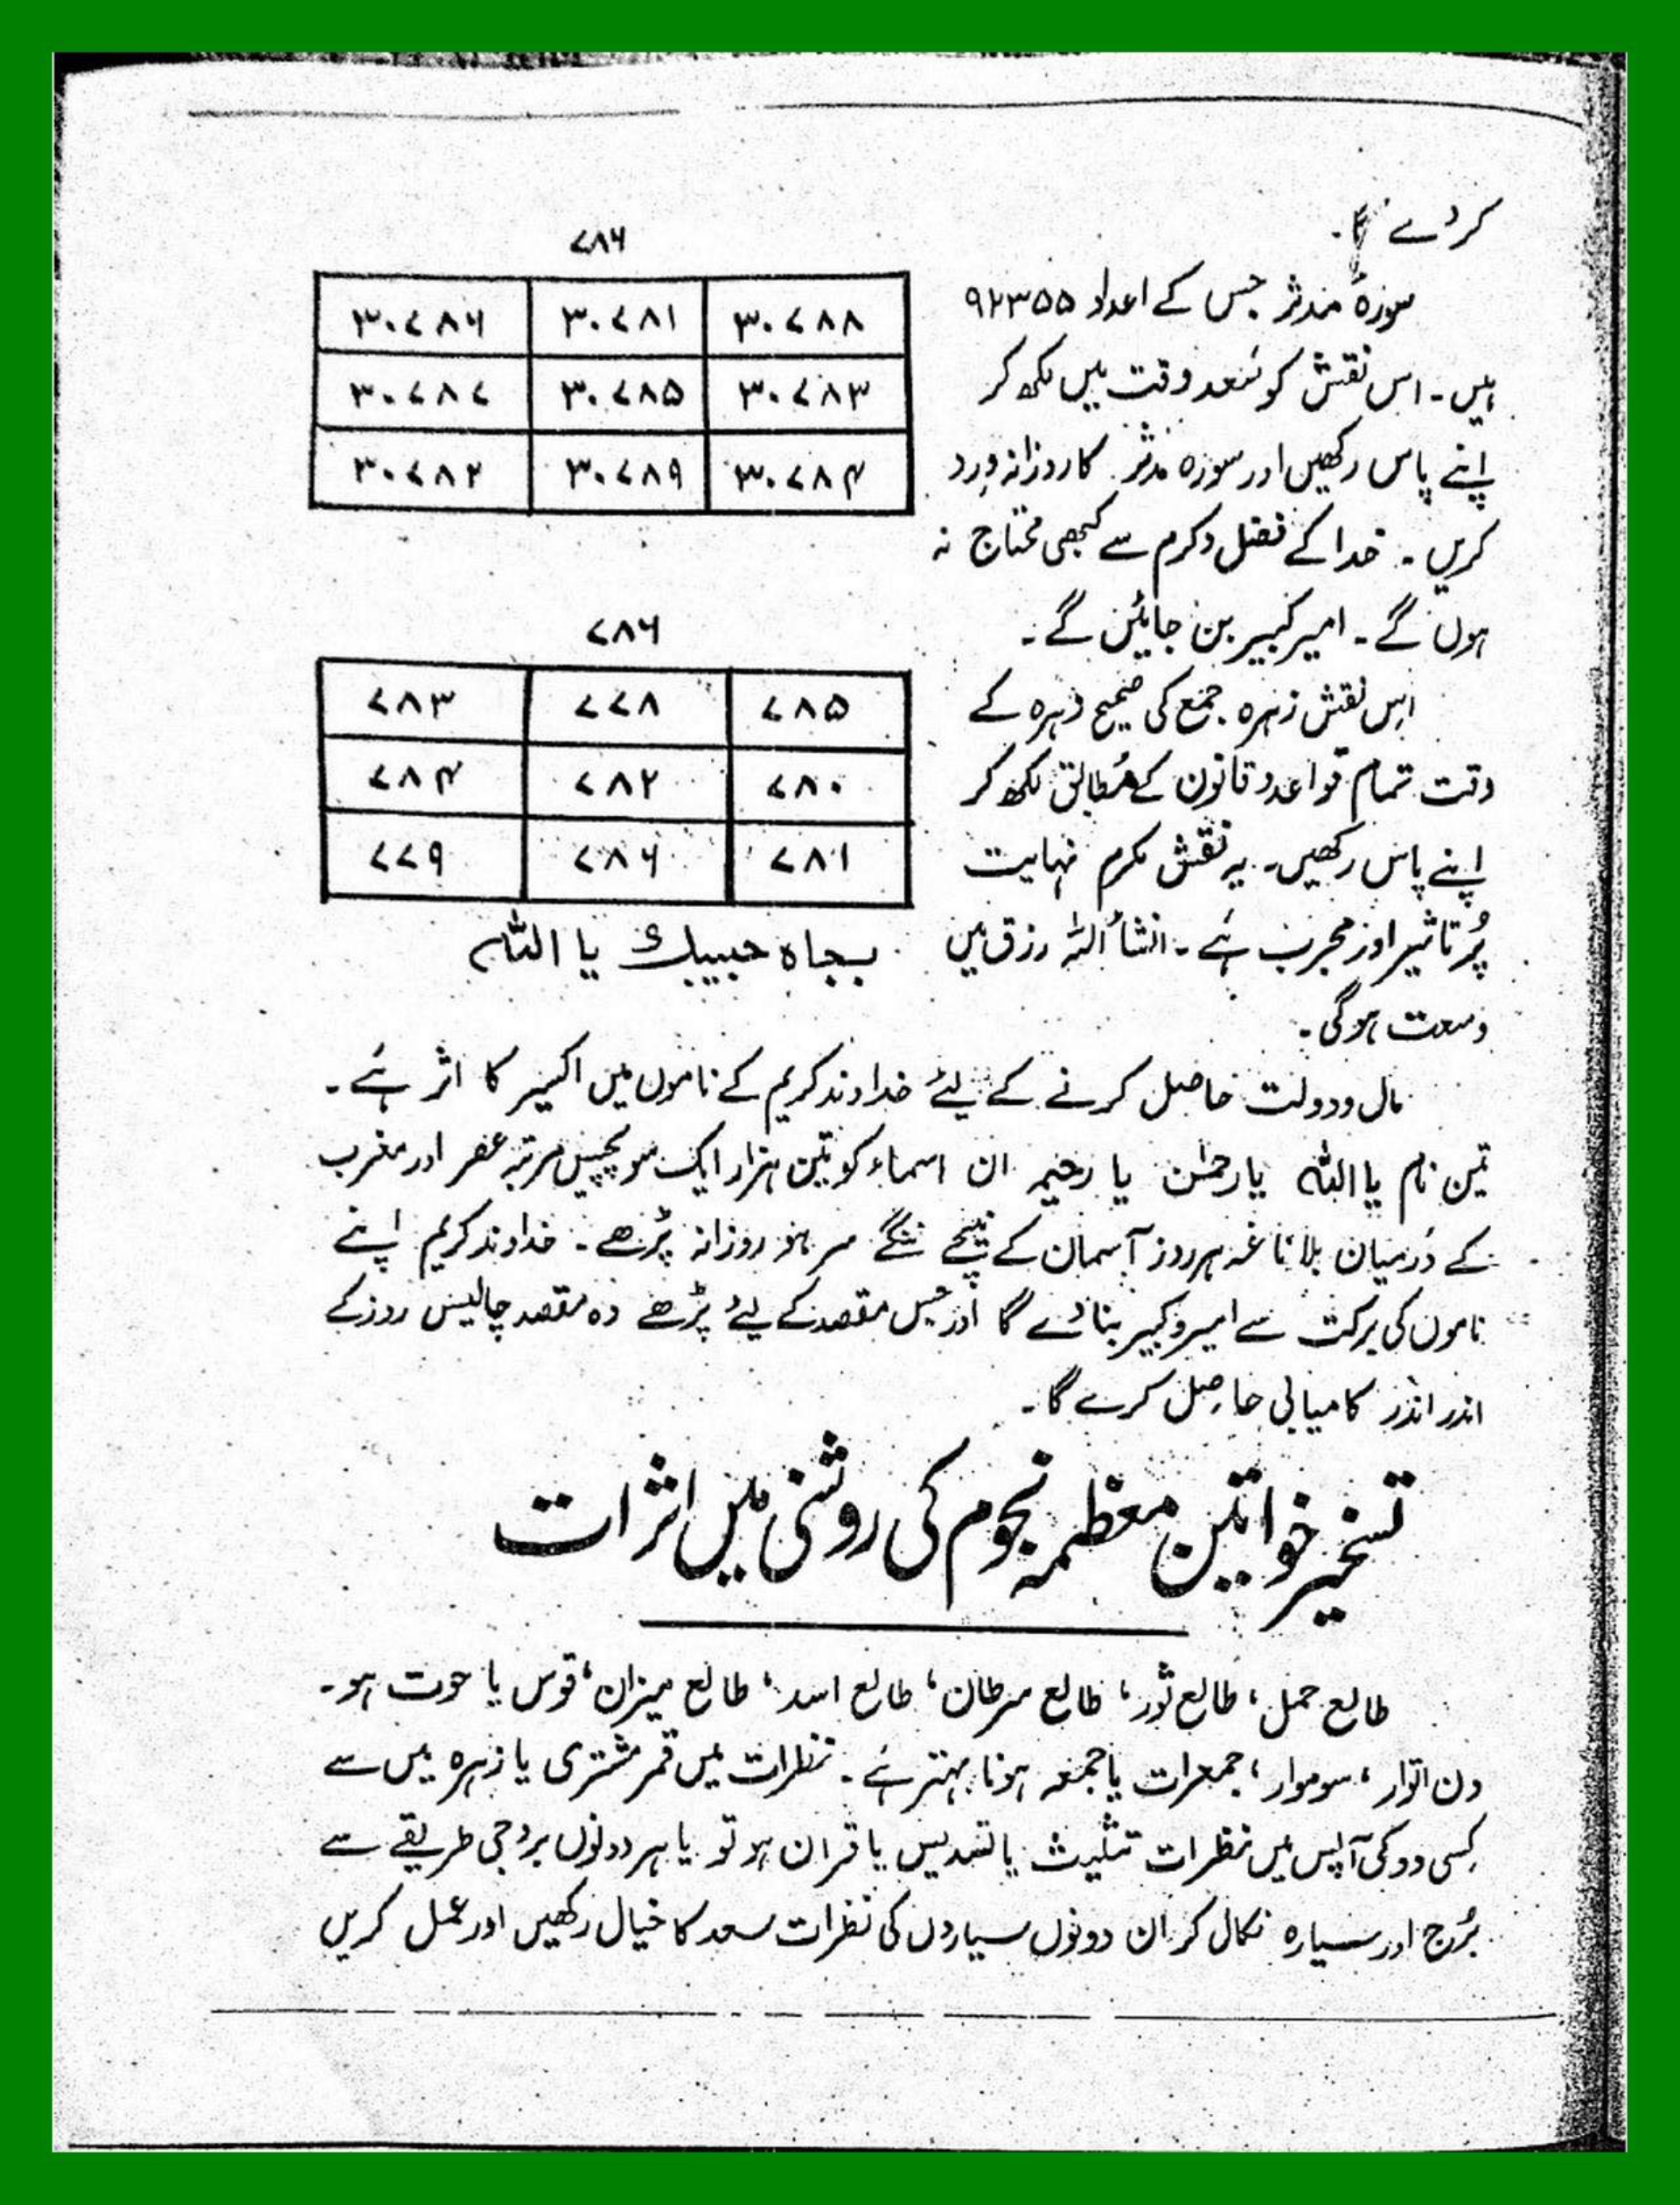 کر دے گا۔
سورۂ مدثر جس کے اعداد ۹۲۳۵۵
ہیں۔ اس نقش کو سَعد وقت میں لکھ کر
اپنے پاس رکھیں اور سورہ مدثر کا روزانہ وِرد
کریں۔ خدا کے فضل و کرم سے کبھی محتاج نہ
ہوں گے۔ امیر کبیر بن جائیں گے۔
۷۸۶
۳۰۷۸۸ ۳۰۷۸۱ ۳۰۷۸۶
۳۰۷۸۳ ۳۰۷۸۵ ۳۰۷۸۷
۳۰۷۸۴ ۳۰۷۸۹ ۳۰۷۸۲
اس نقش زہرہ جمع کی صحیح زہرہ کے
وقت تمام قواعد و قانون کے مُطابق لکھ کر
اپنے پاس رکھیں۔ یہ نقش مکرم نہایت
پُر تاثیر اور مجرب ہَے۔ انشاُ اللہ رزق میں
وسعت ہو گی۔
۷۸۶
۷۸۵ ۷۷۸ ۷۸۳
۷۸۰ ۷۸۲ ۷۸۴
۷۸۱ ۷۸۶ ۷۷۹
بجاہ حبیبك یا اللہ
مال و دولت حاصل کرنے کے لیئے خداوند کریم کے ناموں میں اکسیر کا اثر ہَے۔
تین نام یا اللہ یا رحمٰن یا رحیم ان اسماء کو تین ہزار ایک سو پچیس مرتبہ عصر اور مغرب
کے دَرمیان بلا ناغہ ہر روز آسمان کے نیچے ننگے سر ہو روزانہ پڑھے۔ خداوند کریم اپنے
ناموں کی برکت سے امیر و کبیر بنا دے گا اور جس مقصد کے لیئے پڑھے وہ مقصد چالیس روز کے
اندر اندر کامیابی حاصِل کرے گا۔
تسخیر خواتین معظمہ نجوم کی روشنی میں اثرات
طالع حمل، طالع ثور، طالع سرطان، طالع اسد، طالع میزان، قوس یا حوت ہو۔
دن اتوار، سوموار، جمعرات یا جمعہ ہونا بہتر ہَے۔ نظرات میں قمر مشتری یا زہرہ میں سے
کِسی دو کی آپس میں نظرات تثلیث یا تسدیس یا قران ہو تو یا ہر دونوں بروجی طریقے سے
بُرج اور سیارہ نکال کر ان دونوں سیاروں کی نظرات سعد کا خیال رکھیں اور عمل کریں